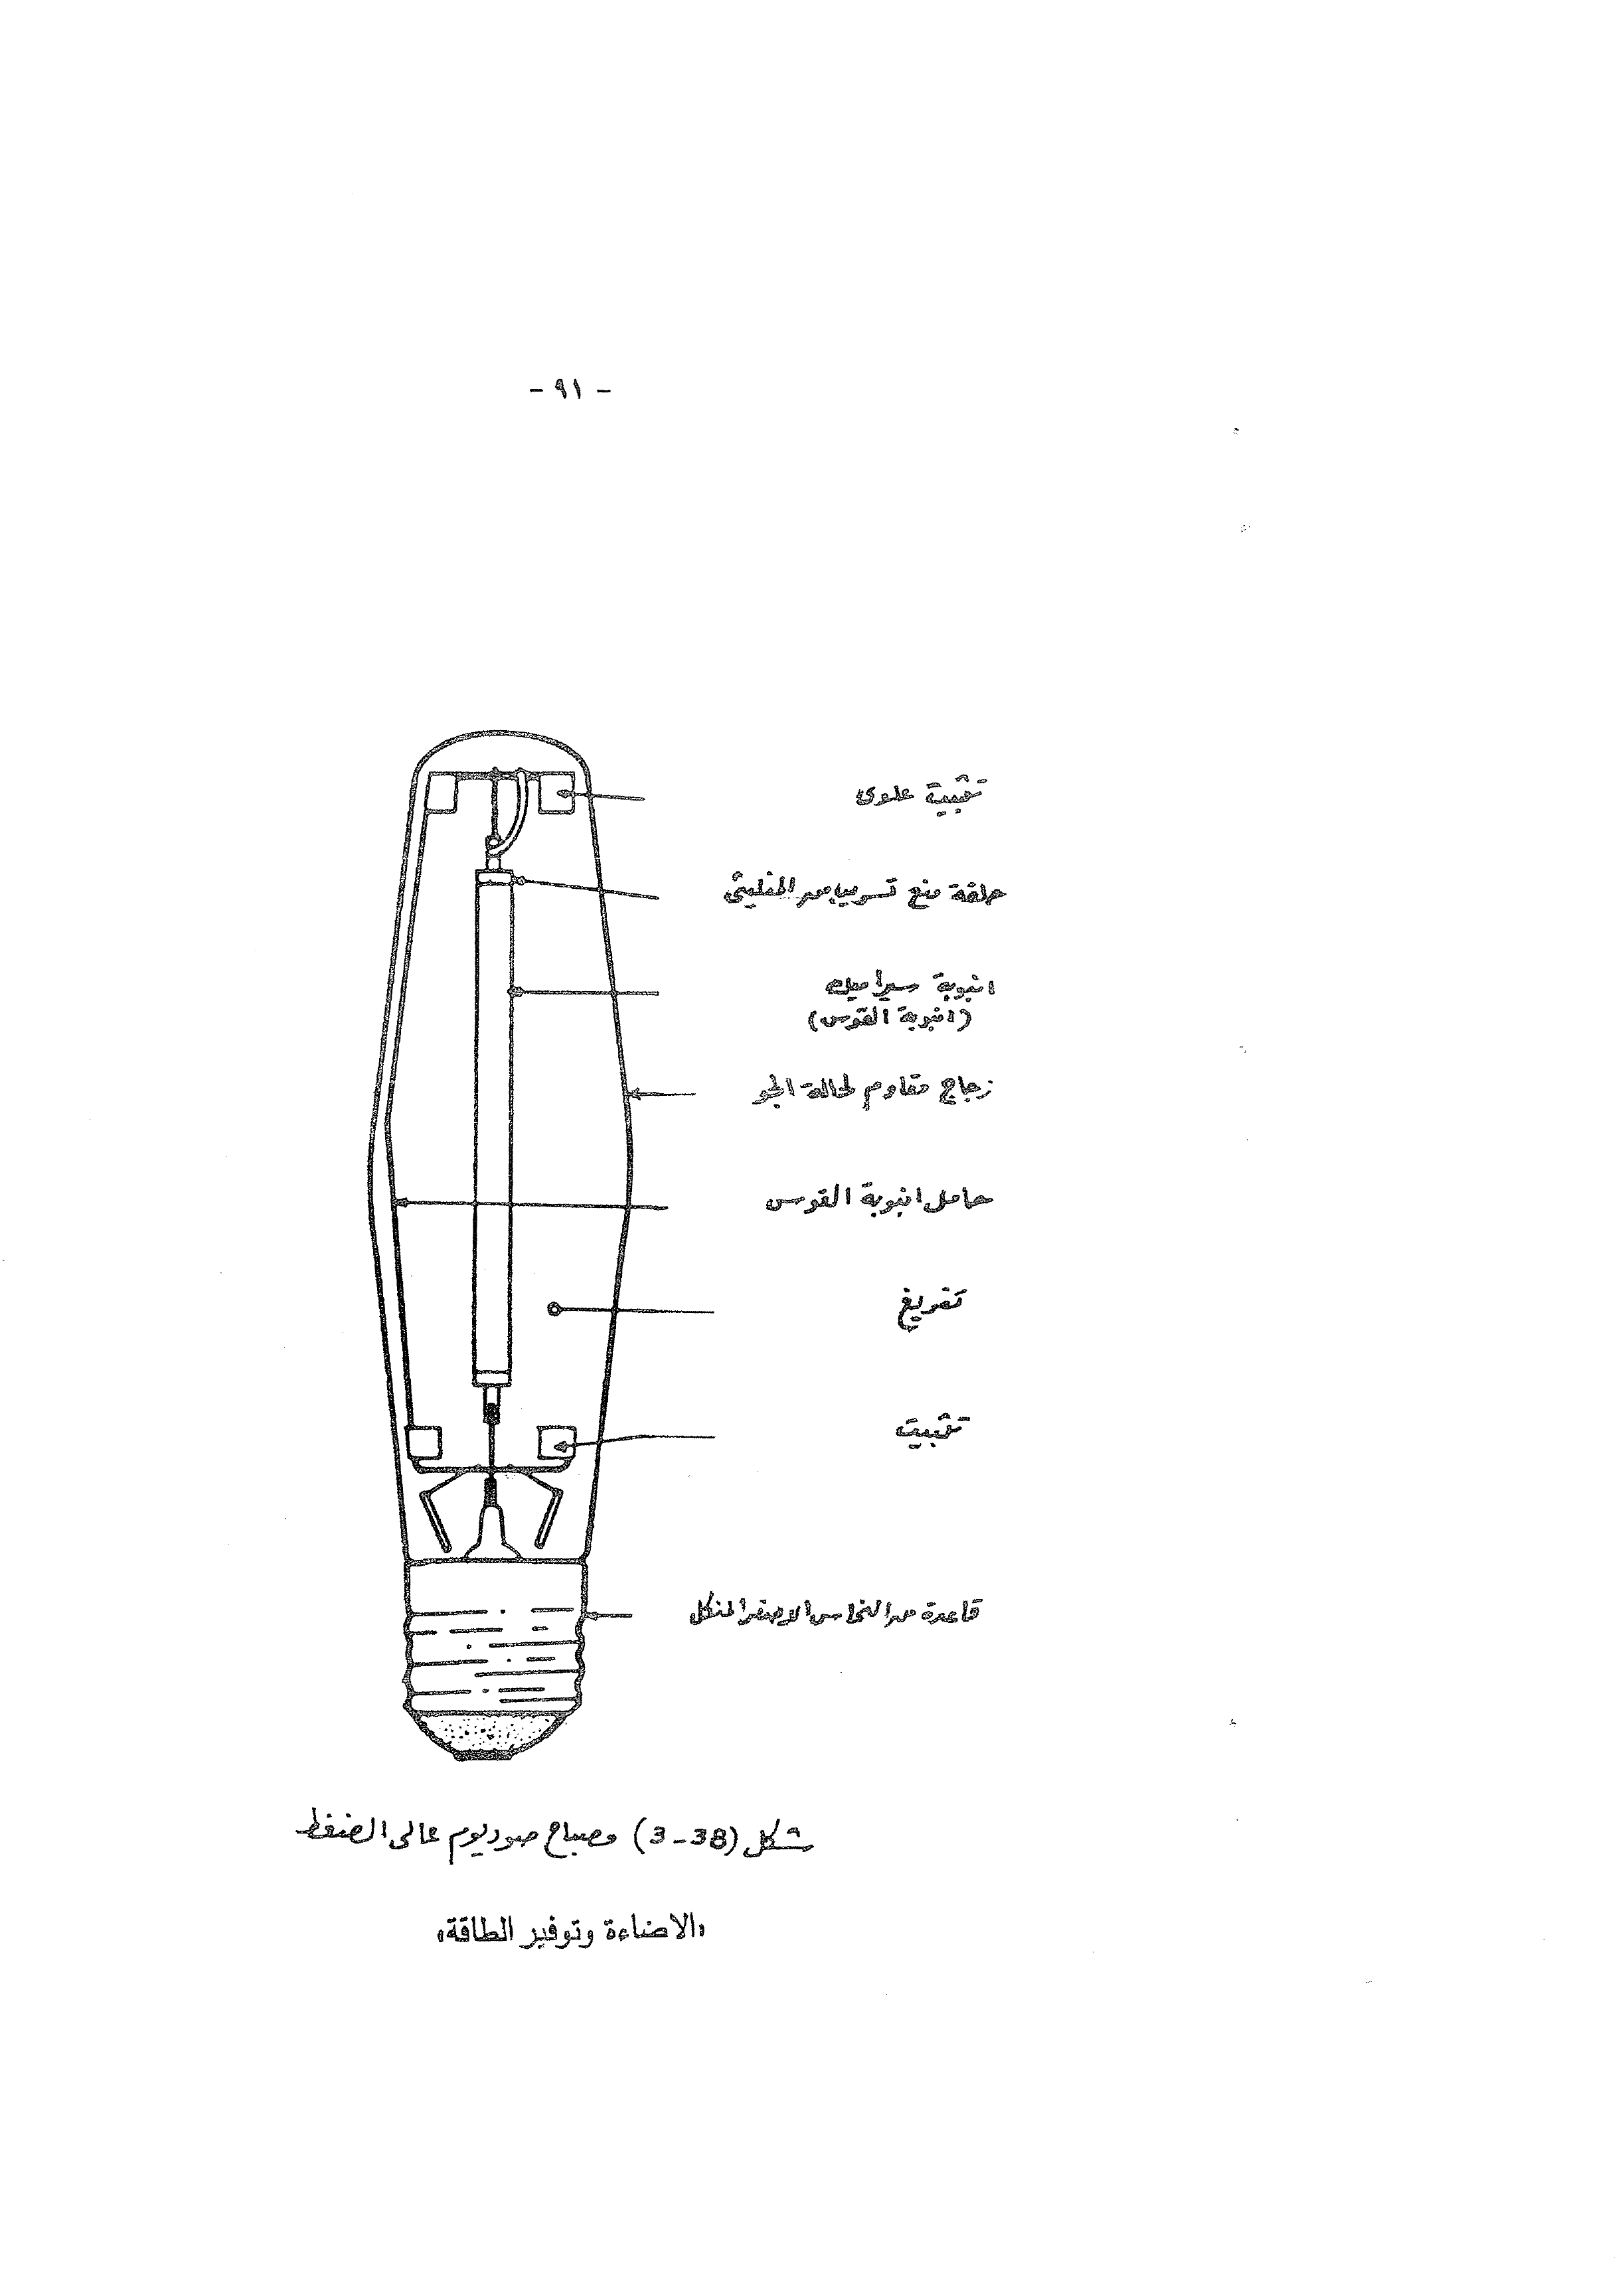 - ٩١ -
تثبيت علوى
حلقة منع تسريب من
انبوبة سيراميك
(انبوبة القوس)
زجاج مقاوم لحالة الجو
حامل انبوبة القوس
تفريغ
تثبيت
قاعدة من النحاس الاصفر المنكل
شكل (38-3) مصباح صوديوم عالى الضغط
«الاضاءة وتوفير الطاقة»